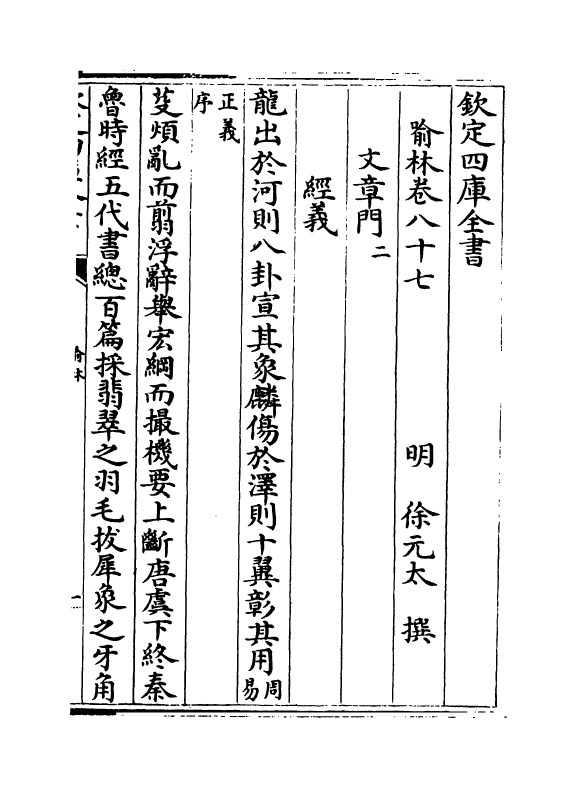 欽定四庫全書
喻林卷八十七　明　徐元太　撰
文章門二
經義
龍出於河則八卦宣其象麟傷於澤則十翼彰其用周易
正義序
芟煩亂而翦浮辭舉宏綱而撮機要上斷唐虞下終秦
魯時經五代書總百篇採翡翠之羽毛拔犀象之牙角
喻林
一